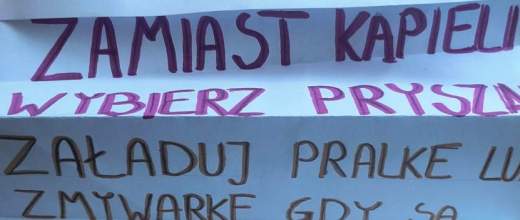 ZAMIAST KAPIELI
WYBIERZ PRYSZN
ZAŁADUJ PRALKE LU
ZMYWARKE GDY SĄ